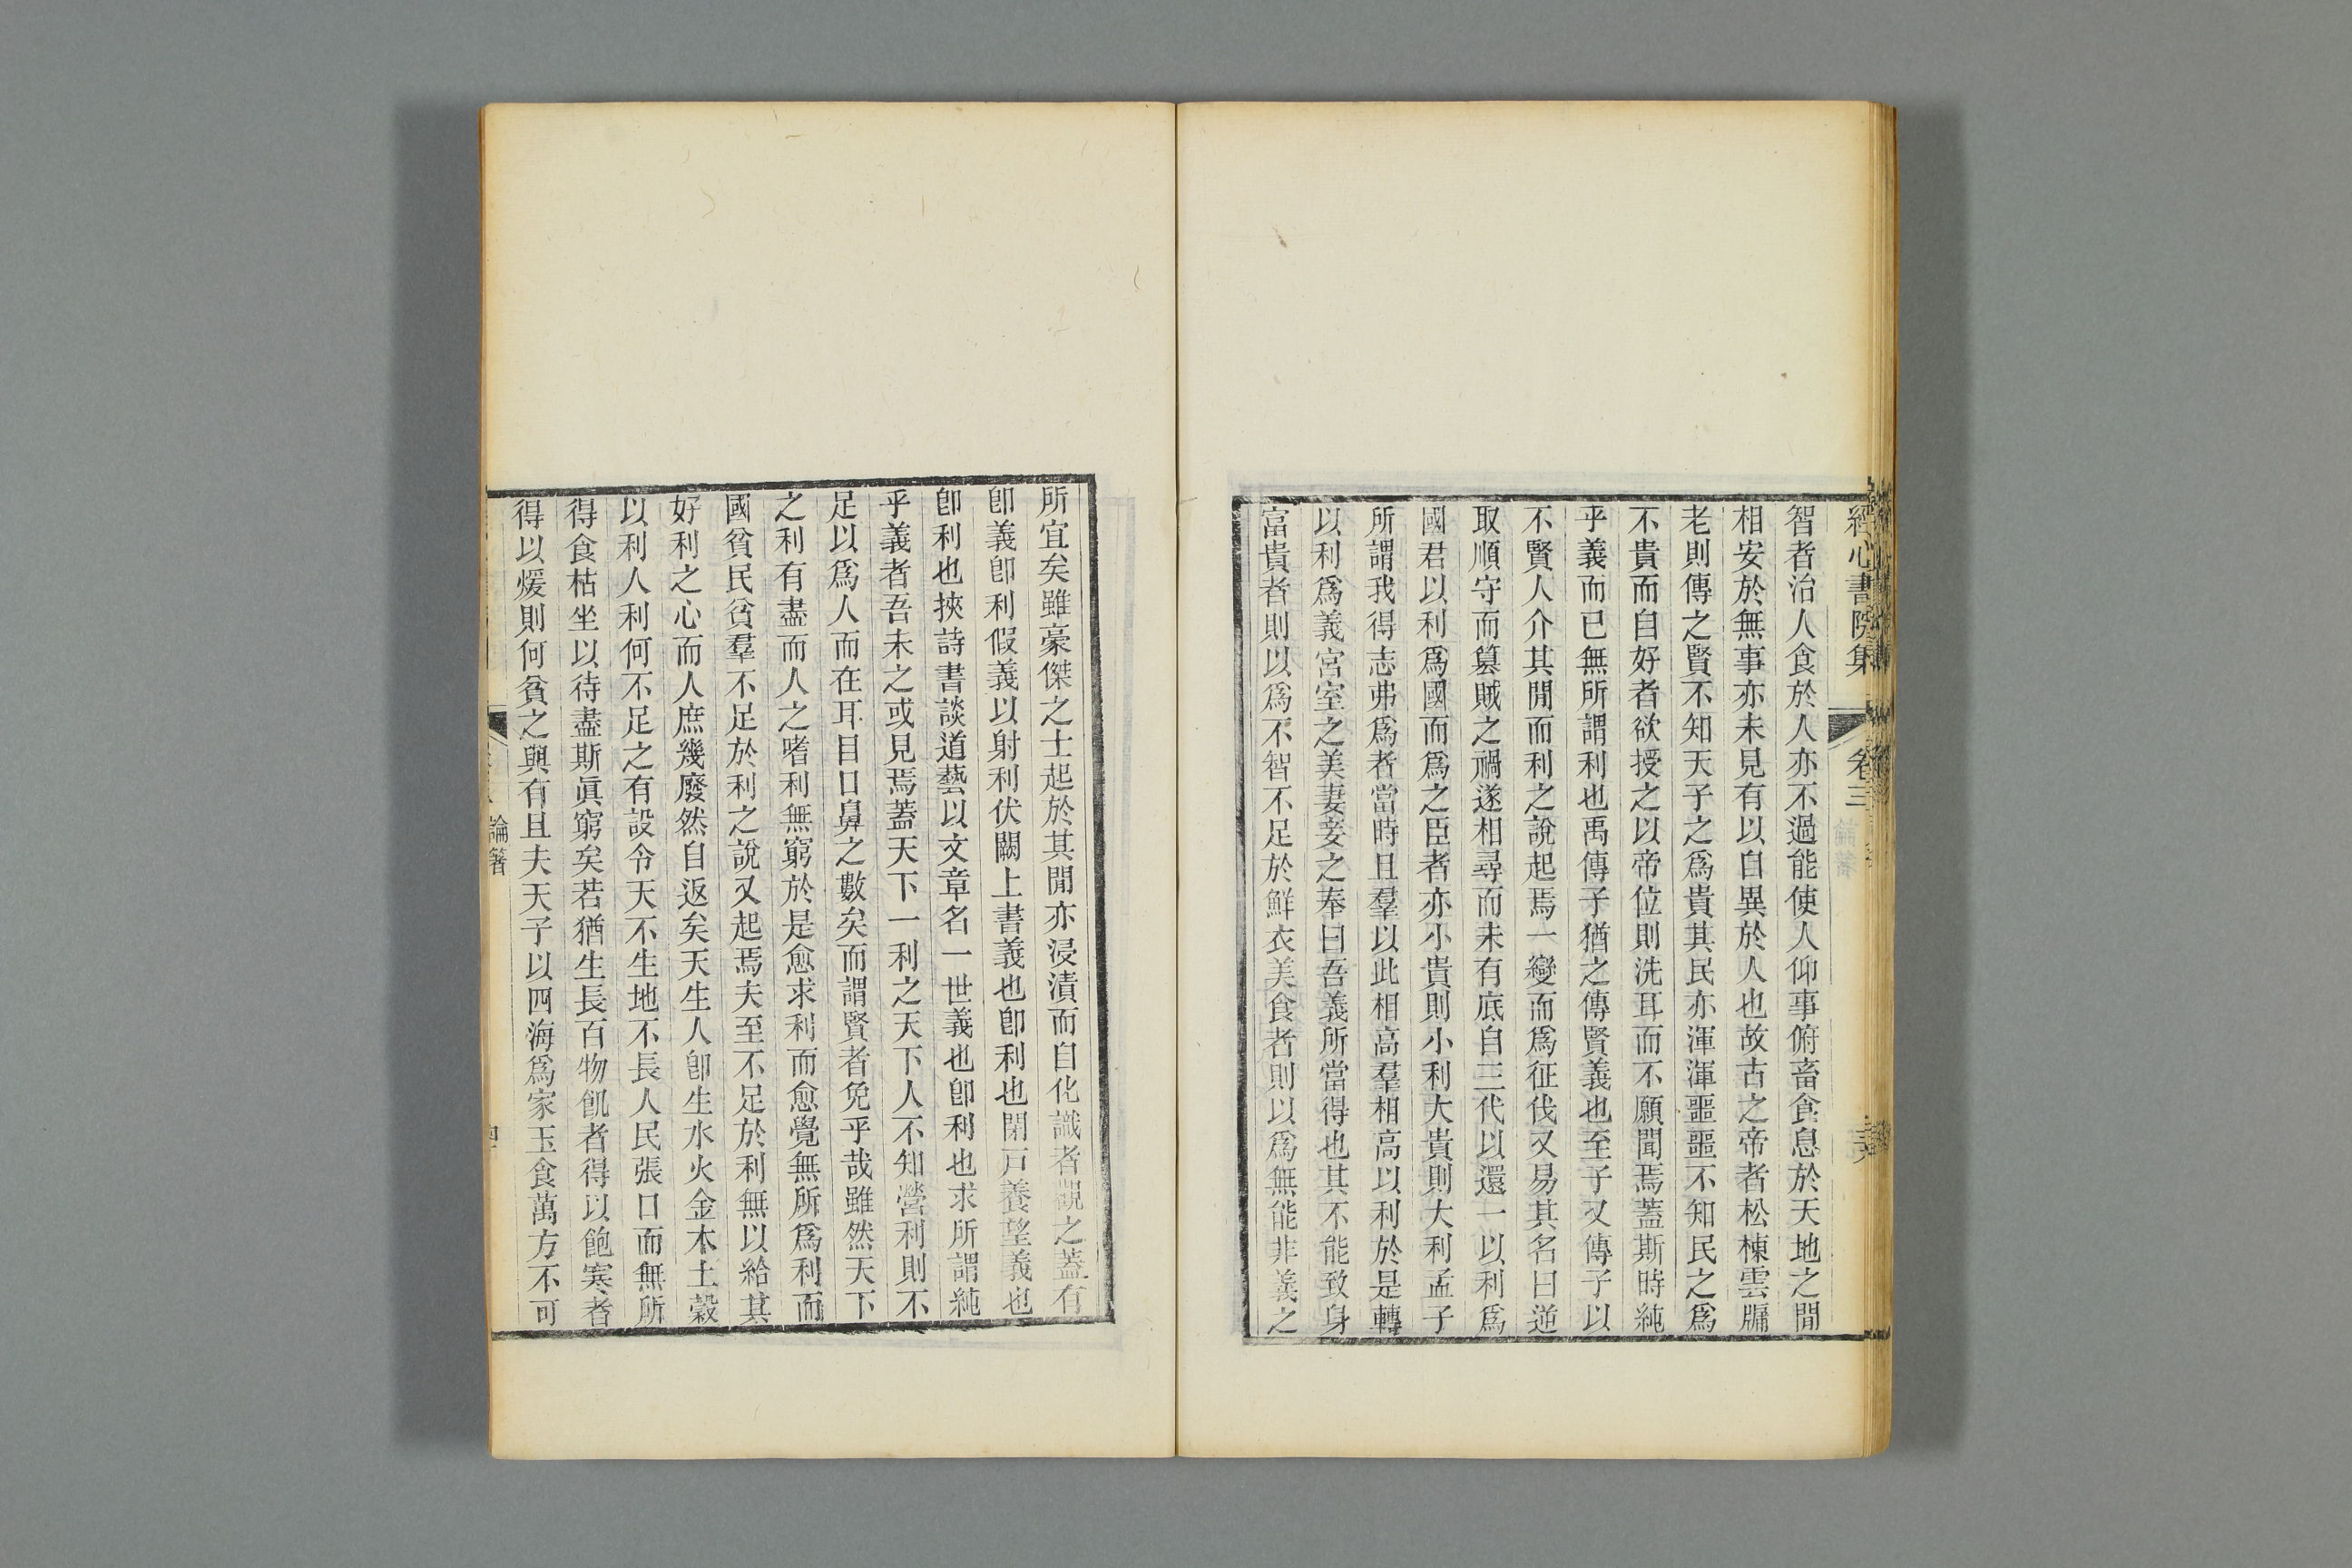 經心書院集 卷三
智者治人食於人亦不過能使人仰事俯畜食息於天地之間
相安於無事亦未見有以自異於人也故古之帝者松棟雲牖
老則傳之賢不知天子之爲貴其民亦渾渾噩噩不知民之爲
不貴而自好者欲授之以帝位則洗耳而不願聞焉蓋斯時純
乎義而已無所謂利也禹傳子猶之傳賢義也至子又傳子以
不賢人介其閒而利之說起焉一變而爲征伐又易其名曰逆
取順守而篡賊之禍遂相尋而未有底自三代以還一以利爲
國君以利爲國而爲之臣者亦小貴則小利大貴則大利孟子
所謂我得志弗爲者當時且羣以此相高羣相高以利於是轉
以利爲義宮室之美妻妾之奉曰吾義所當得也其不能致身
富貴者則以爲不智不足於鮮衣美食者則以爲無能非義之
所宜矣雖豪傑之士起於其閒亦浸漬而自化識者觀之蓋有
卽義卽利假義以射利伏闕上書義也卽利也閉戸養望義也
卽利也挾詩書談道藝以文章名一世義也卽利也求所謂純
乎義者吾未之或見焉蓋天下一利之天下人不知營利則不
足以爲人而在耳目口鼻之數矣而謂賢者免乎哉雖然天下
之利有盡而人之嗜利無窮於是愈求利而愈覺無所爲利而
國貧民貧羣不足於利之說又起焉夫至不足於利無以給其
好利之心而人庶幾廢然自返矣天生人卽生水火金木土穀
以利人利何不足之有設令天不生地不長人民張口而無所
得食枯坐以待盡斯眞窮矣若猶生長百物飢者得以飽寒者
得以煖則何貧之與有且夫天子以四海爲家玉食萬方不可
論著